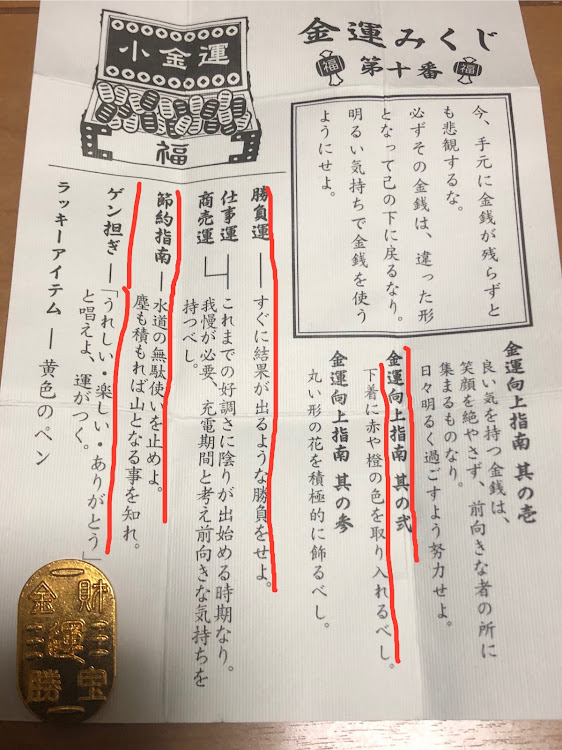 金運みくじ
福 第十番 福
小金運
福
今、手元に金銭が残らずと
も悲観するな。
必ずその金銭は、違った形
となって己の下に戻るなり。
明るい気持ちで金銭を使う
ようにせよ。
金運向上指南 其の壱
良い気を持つ金銭は、
笑顔を絶やさず、前向きな者の所に
集まるものなり。
日々明るく過ごすよう努力せよ。
金運向上指南 其の弐
下着に赤や橙の色を取り入れるべし。
金運向上指南 其の参
丸い形の花を積極的に飾るべし。
勝負運 ― すぐに結果が出るような勝負をせよ。
仕事運
商売運
これまでの好調さに陰りが出始める時期なり。
我慢が必要、充電期間と考え前向きな気持ちを
持つべし。
節約指南 ― 水道の無駄使いを止めよ。
塵も積もれば山となる事を知れ。
ゲン担ぎ ― 「うれしい・楽しい・ありがとう」
と唱えよ、運がつく。
ラッキーアイテム ― 黄色のペン
財宝
運
金勝